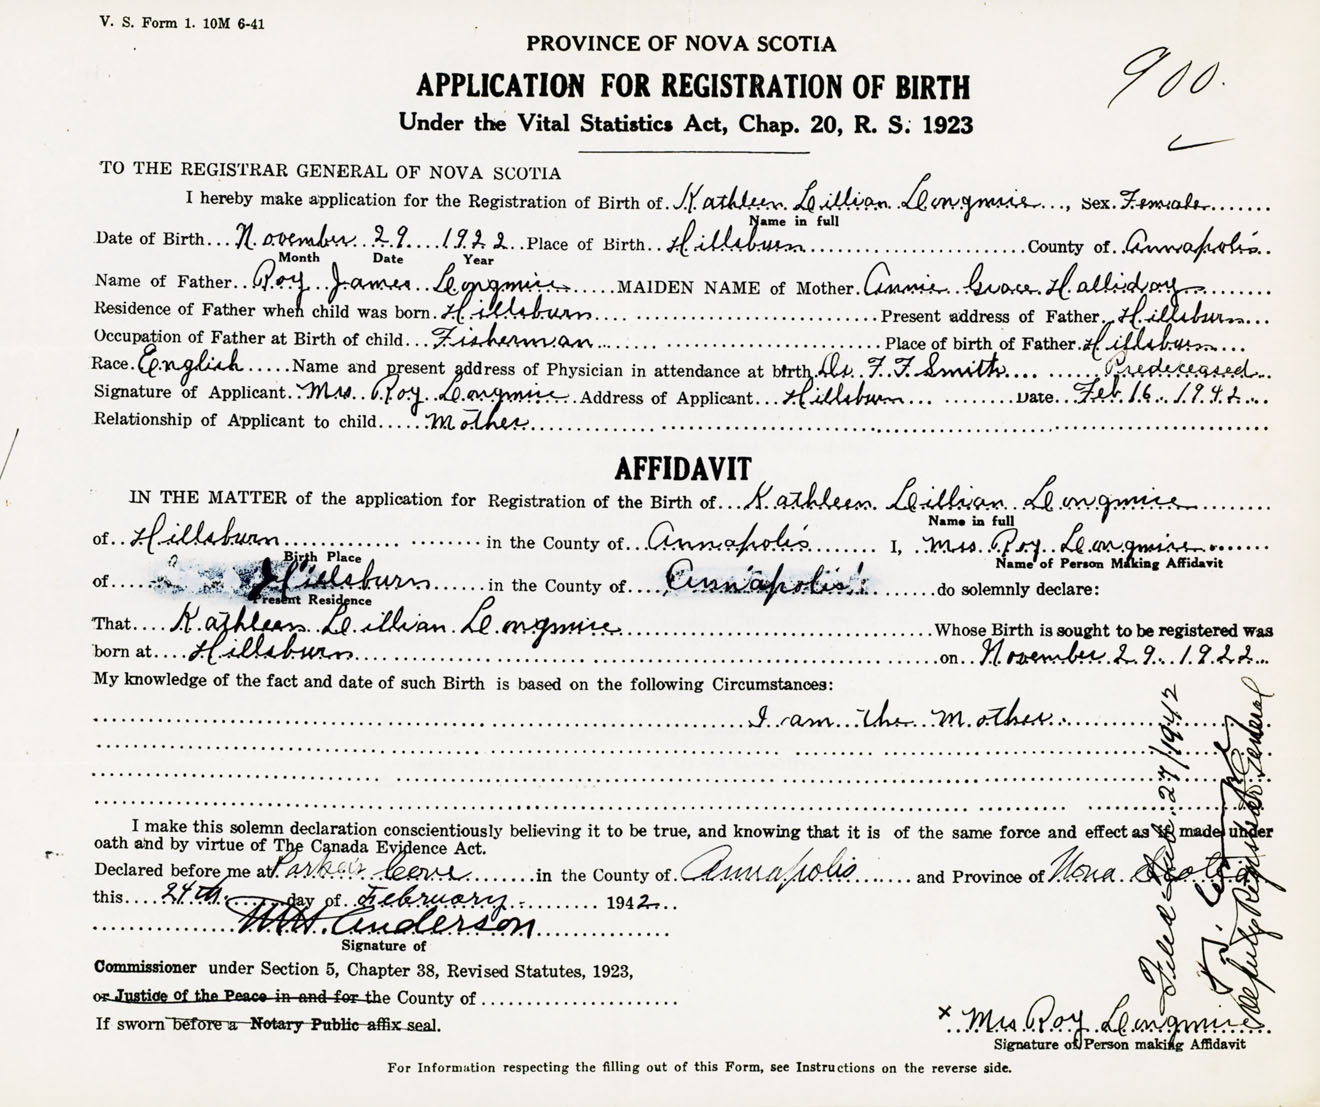 V. S. Form 1. 10M 6-41
PROVINCE OF NOVA SCOTIA
900.
APPLICATION FOR REGISTRATION OF BIRTH
Under the Vital Statistics Act, Chap. 20, R. S. 1923
TO THE REGISTRAR GENERAL OF NOVA SCOTIA
I hereby make application for the Registration of Birth of Kathleen Lillian Longmire, Sex Female
Name in full
Date of Birth November 29 1922 Place of Birth Hillsburn County of Annapolis
Month Date Year
Name of Father Roy James Longmire MAIDEN NAME of Mother Annie Grace Halliday
Residence of Father when child was born Hillsburn Present address of Father Hillsburn
Occupation of Father at Birth of child Fisherman Place of birth of Father Hillsburn
Race English Name and present address of Physician in attendance at birth Dr. F. F. Smith Predeceased
Signature of Applicant Mrs. Roy Longmire Address of Applicant Hillsburn Date Feb. 16. 1942
Relationship of Applicant to child Mother
AFFIDAVIT
IN THE MATTER of the application for Registration of the Birth of Kathleen Lillian Longmire
Name in full
of Hillsburn in the County of Annapolis I, Mrs. Roy Longmire
Birth Place Name of Person Making Affidavit
of Hillsburn in the County of Annapolis do solemnly declare:
Present Residence
That Kathleen Lillian Longmire Whose Birth is sought to be registered was
born at Hillsburn on November 29. 1922
My knowledge of the fact and date of such Birth is based on the following Circumstances:
I am the Mother
I make this solemn declaration conscientiously believing it to be true, and knowing that it is of the same force and effect as if made under
oath and by virtue of The Canada Evidence Act.
Declared before me at Parker's Cove in the County of Annapolis and Province of Nova Scotia
this 24th day of February 1942
M H. Anderson
Signature of
Commissioner under Section 5, Chapter 38, Revised Statutes, 1923,
or Justice of the Peace in and for the County of
If sworn before a Notary Public affix seal.
x Mrs Roy Longmire
Signature of Person making Affidavit
For Information respecting the filling out of this Form, see Instructions on the reverse side.
Filed Feb. 27/1942
Deputy Registrar General